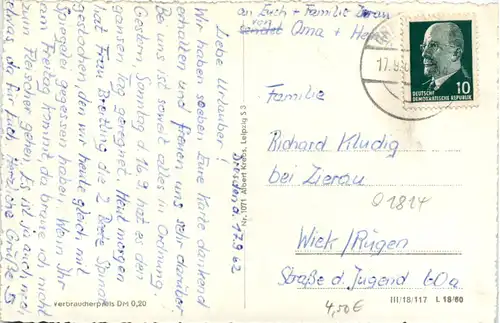 an Euch + Familie Zierau
von
sendet Oma + He
Dresden, d. 17.9.62
Liebe Urlauber!
Wir haben soeben Eure Karte dankend
erhalten und freuen uns sehr darüber.
Bei uns ist soweit alles in Ordnung.
Gestern, Sonntag d. 16.9. hat es den
ganzen Tag geregnet. Heut morgen
hat Frau Breitling die 2 Beete Spinat
gebracht, den wir heute gleich mit
Spiegelei gegessen haben. Wenn Ihr
am Freitag kommt, da brauche ich nicht
zum Fleischer gehen. Es ist ja auch
etwas da für Euch. Herzliche Grüße
Verbraucherpreis DM 0,20
Nr. 1071 Albert Krebs, Leipzig S 3
17. 9.
DEUTSCHE
DEMOKRATISCHE REPUBLIK
10
Familie
Richard Kludig
bei Zierau
01814
Wiek/Rügen
Straße d. Jugend 60a
4,50€
III/18/117 L 18/60